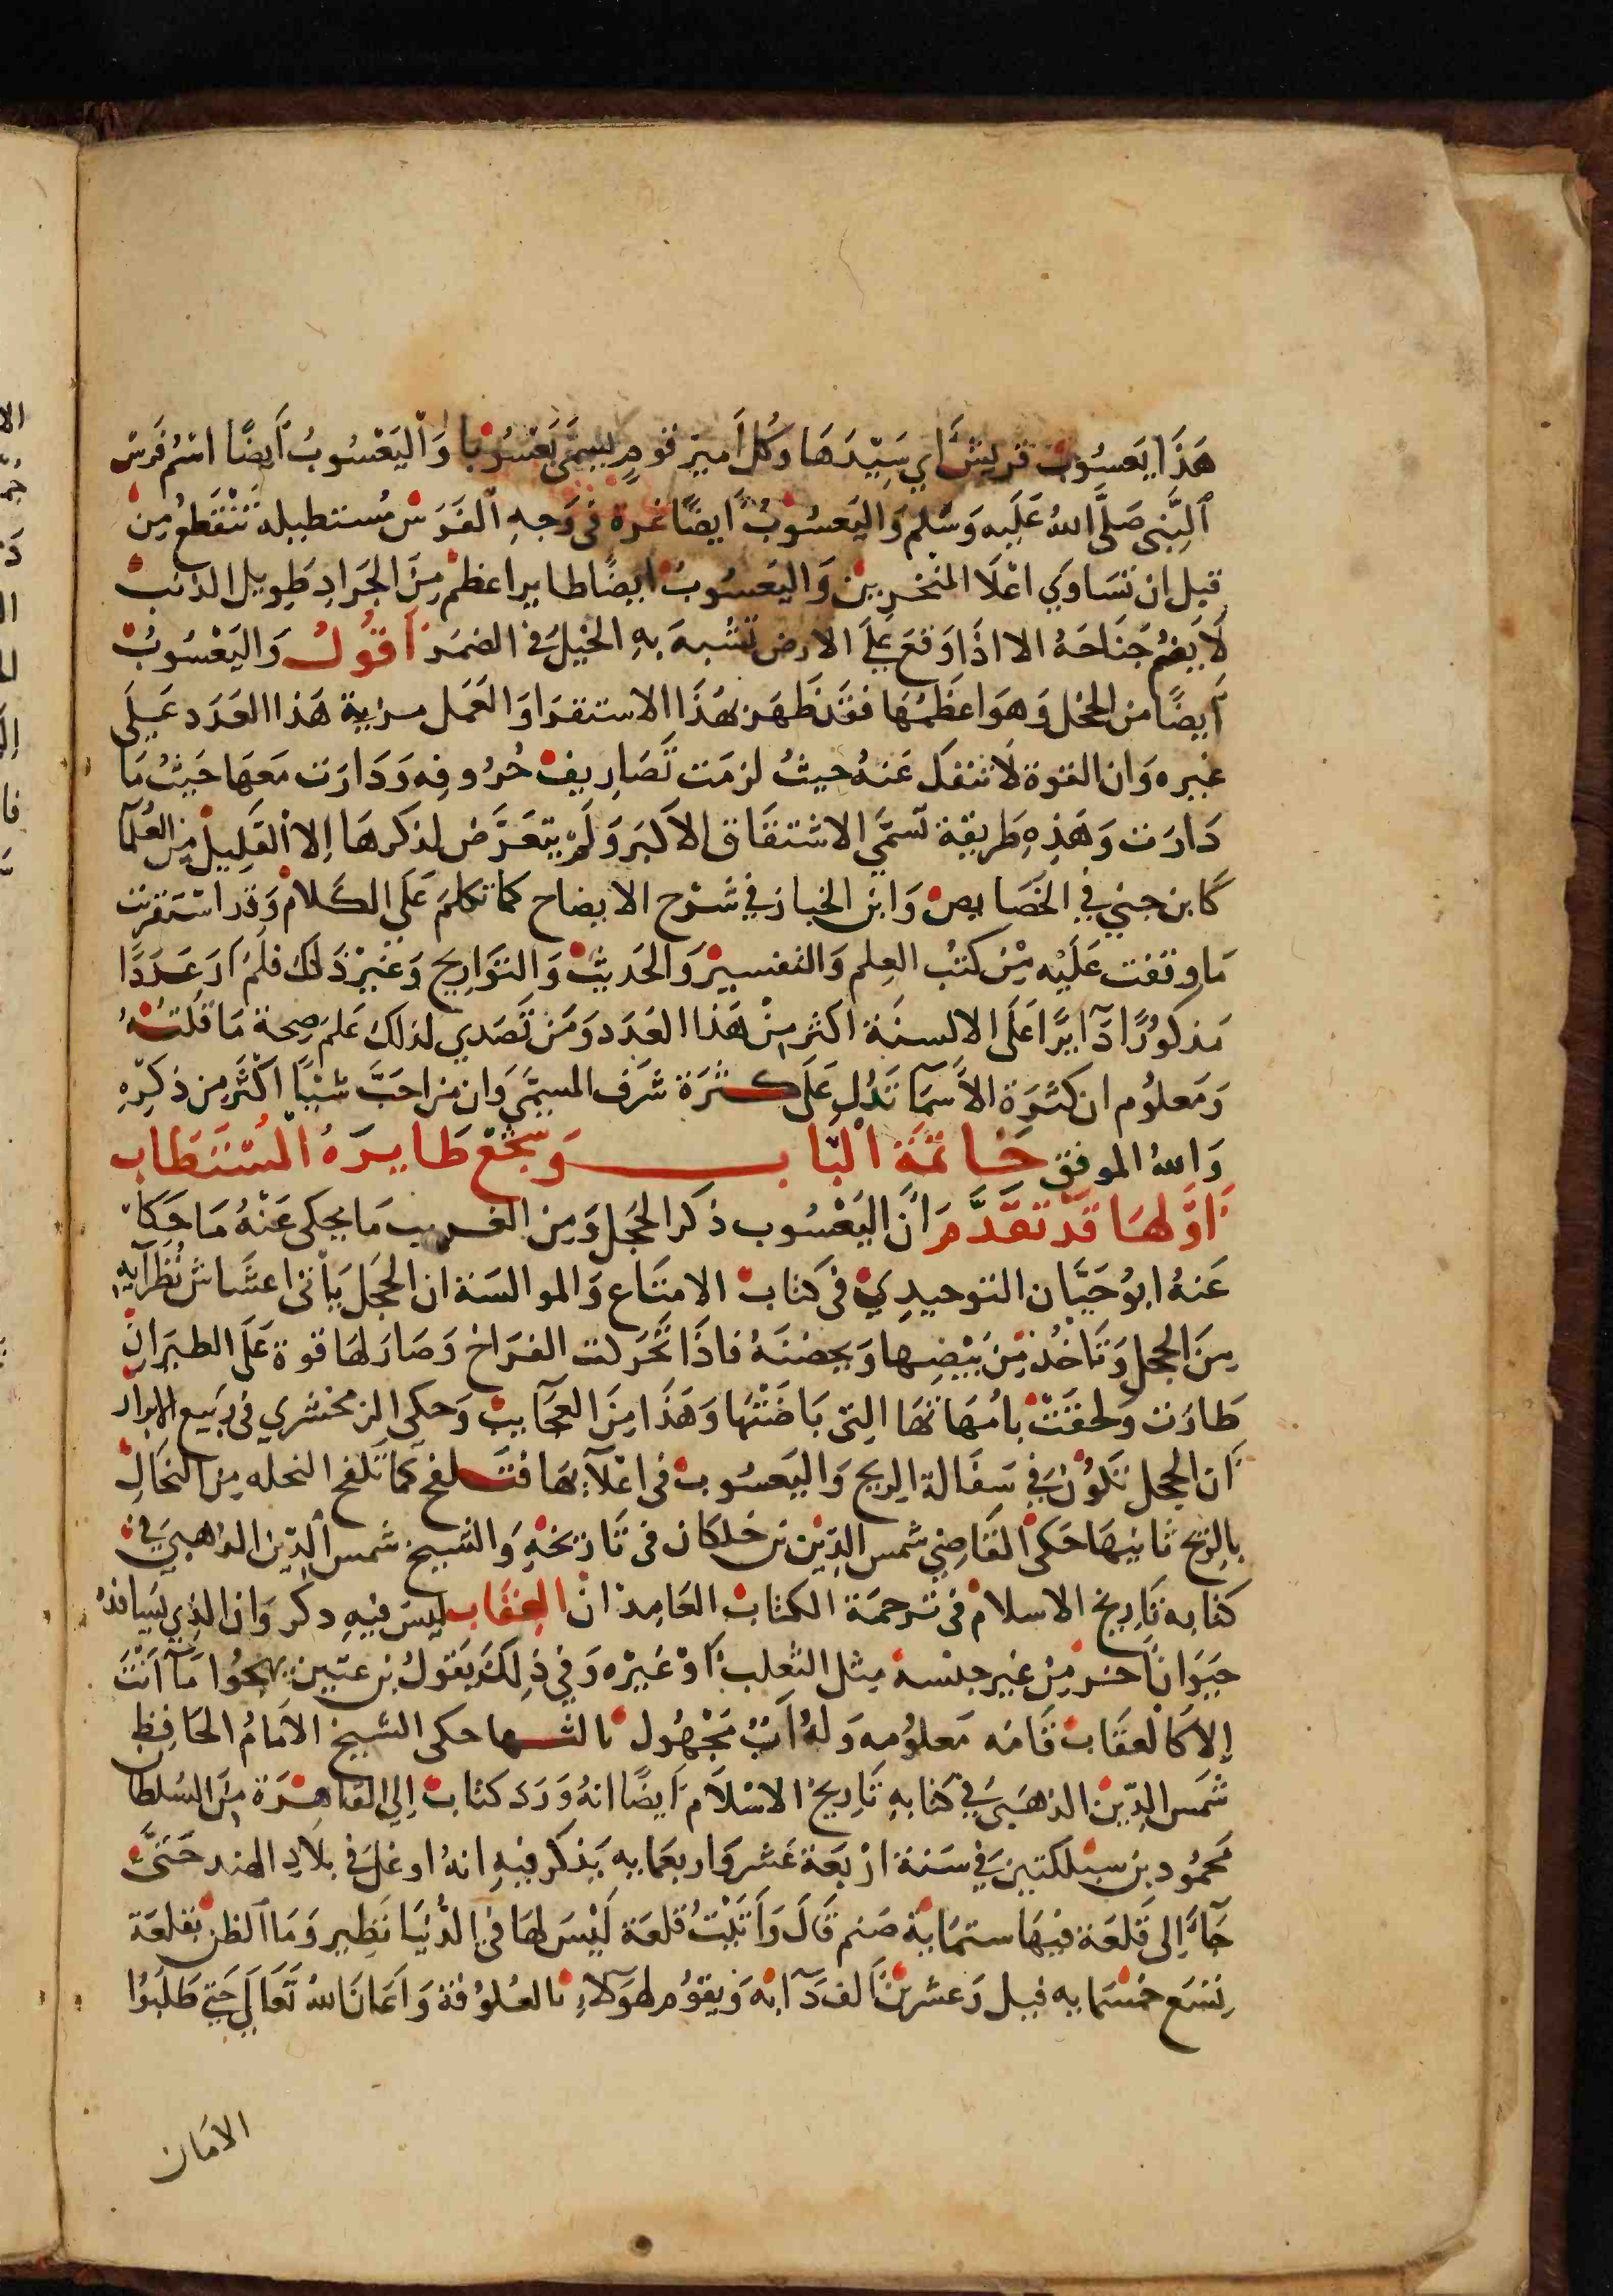 هَذَا يَعسُوب قريش اي سَيّدَهَا وَكل اَمير قومٍ يسمَّى يَعْسُوبا وَاليَعْسُوبُ اَيضًا اسْمُ فَرَس
النَّبى صَلَّى اللهُ عَلَيه وَسَلم وَاليَعسُوبُ اَيضًا غرة فى وَجهِ الفَرَس مُستطيله تَنْقَطعُ من
قبل ان تسَاوي اعْلَا المنخرين وَاليَعسُوبُ ايضًا طاير اعظمُ مِنَ الجَرَادِ طَويل الذنب
لَا يَضُم جَنَاحَهُ الا اذَا وَقعَ عَلَى الارض تشبهَ بهِ الخَيلُ في الضمَر اَقُولُ وَاليَعْسُوبُ
اَيضًا من الحجل وَهوَ اعظَمُهَا فقَد ظَهَر بهَذَا الاستقرَا وَالعَمَل مزية هَذا العَدَد عَلَى
غيره وَان القوة لَا تنفك عَنهُ حيثُ لزمَت تَصَاريف حُرُوفِه وَدَارَت مَعهَا حَيثُ مَا
دَارَت وَهَذِهِ طَريقة تسَمَّي الاشتقَاق الاكبَر وَلم يتعَرَّض لذكرهَا اِلا القَلِيل مِن العُلمآ
كَابن جني في الخَصَايص وَابن الخباز في شَرْح الايضاح كما تكلمَ عَلَى الكَلام وَقد استَقريت
مَا وقفت عَلَيْه مِنْ كتُب العِلم وَالتفسير وَالحَديث وَالتوَاريخ وَغيرْ ذَلكَ فلمْ اَر عَدَدًا
مَذكوُرًا دَآيرًا عَلَى الالسنَة اكثر مِنْ هَذا العَدَد وَمَن تَصَدي لذلكَ عَلمَ صِحة مَا قُلتُهُ
وَمَعلوُم ان كَثرَة الاَسمَآ تَدُل عَلَى كثرَة شرَف المسمَّى وَان من احَبَّ شيْئًا اكْثَر مِن ذكرِهِ
وَاللهُ الموفق خَاتمَة البَاب وَسَجْعَ طَايرَهُ المُسْتَطَاب
اَوَّلهَا قَدْ تقدَّم اَنَ اليَعْسُوب ذكَر الحجَل وَمِن الغريب مَا يحكى عَنْهُ مَا حَكَاه
عَنهُ ابُو حَيَّان التوحيدِي فى كتَاب الامتَاع وَالموالسَنة ان الحجَل يَاتى اعشَاش نُظَرآيه
مِنَ الحجَل وَتَاخُذ مِنْ بَيْضِها وَيحضنَهُ فاذَا تحَركت الفرَاخ وَصَارَ لهَا قوة عَلَى الطيَرَان
طَارَت وَلحقَتْ بامُهَاتهَا التى بَاضَتْهَا وَهَذَا مِنَ العجَآيب وَحكى الزمخشري فى رَبيع الابرار
اَن الحجل تَكوُنُ في سفَالة الريح وَاليَعسُوب فى اعْلآيهَا فتَلقح كمَا تلقح النخله مِن النخَالِ
بِالرّيح ثانيهَا حَكى القَاضِي شمس الدّين بن خلكان فى تَاريخه وَالشيخ شمس الدّين الذهبيَ في
كتابه تَاريخ الاسلام فى تَرجمَة الكتاب العَامد ان العقَاب ليسَ فيهِ دكر وَان الذي يسَافدهُ
حيَوَانًا اخر مِنْ غير جنسه مِثل الثعلب اَوْ غَيره وَفي ذلكَ يَقولُ بن عنين يهجُوا مَآ اَنْتَ
اِلا كَالعقَاب فَامّه مَعلوُمه وَلهُ اَبٌ مَجْهُول ثالثها حكى الشيخ الاِمَامُ الحَافظ
شَمس الدّين الذهَبيَ في كتابهِ تَاريخ الاسْلَام اَيضًا انهُ وَرَدَ كتاب اِلي القاهرَة مِنَ السُلطا
مَحمُود بن سبُكتكين في سَنة ارْبَعَة عَشر وَاربعمايه يَذكر فيهِ انهُ اوغل في بلَادِ الهند حَتىَّ
جَآءَ اِلى قَلعَة فيهَا ستمَاية صَنم قَالَ وَاَتَيْتُ قلعَة لَيْسَ لهَا في الدُّنيَا نَظِير وَمَا الظن بقلعَة
تسَع خمسمايه فيل وَعشرينَ الف دَآبّه وَيقوُم لهؤلآءِ بالعُلوُفة وَاعَانَ اللهُ تَعَالَى حَتى طَلَبُوا
الامَان